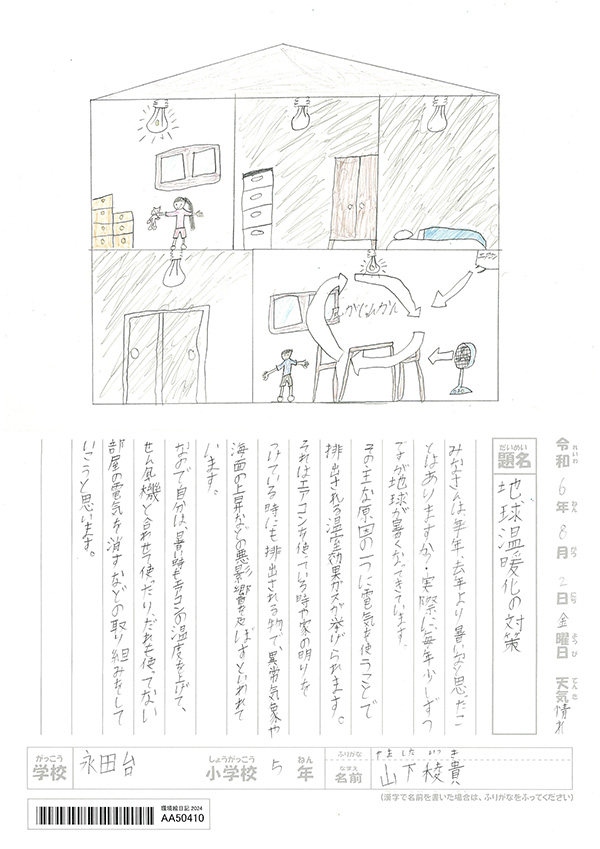 エアコン
くうかんじゅんかん
令和6年8月2日金曜日 天気晴れ
れいわ ねん がつ にち きんようび てんき
だいめい
題名
地球温暖化の対策
みなさんは、毎年、去年より暑いなと思ったこ
とはありますか。実際に、毎年少しずつ
ですが地球が暑くなってきています。
その主な原因の一つに電気を使うことで
排出される温室効果ガスが挙げられます。
それはエアコンを使っている時や家の明りを
つけている時にも排出される物で、異常気象や
海面の上昇などの悪影響を及ぼすといわれて
います。
なので自分は、暑い時もエアコンの温度を上げて、
せん風機と合わせて使ったり、だれも使ってない
部屋の電気を消すなどの取り組みをして
いこうと思います。
がっこう
学校
永田台
しょうがっこう
小学校
5
ねん
年
ふりがな
やました いつき
なまえ
名前
山下稜貴
(漢字で名前を書いた場合は、ふりがなをふってください)
環境絵日記 2024
AA50410